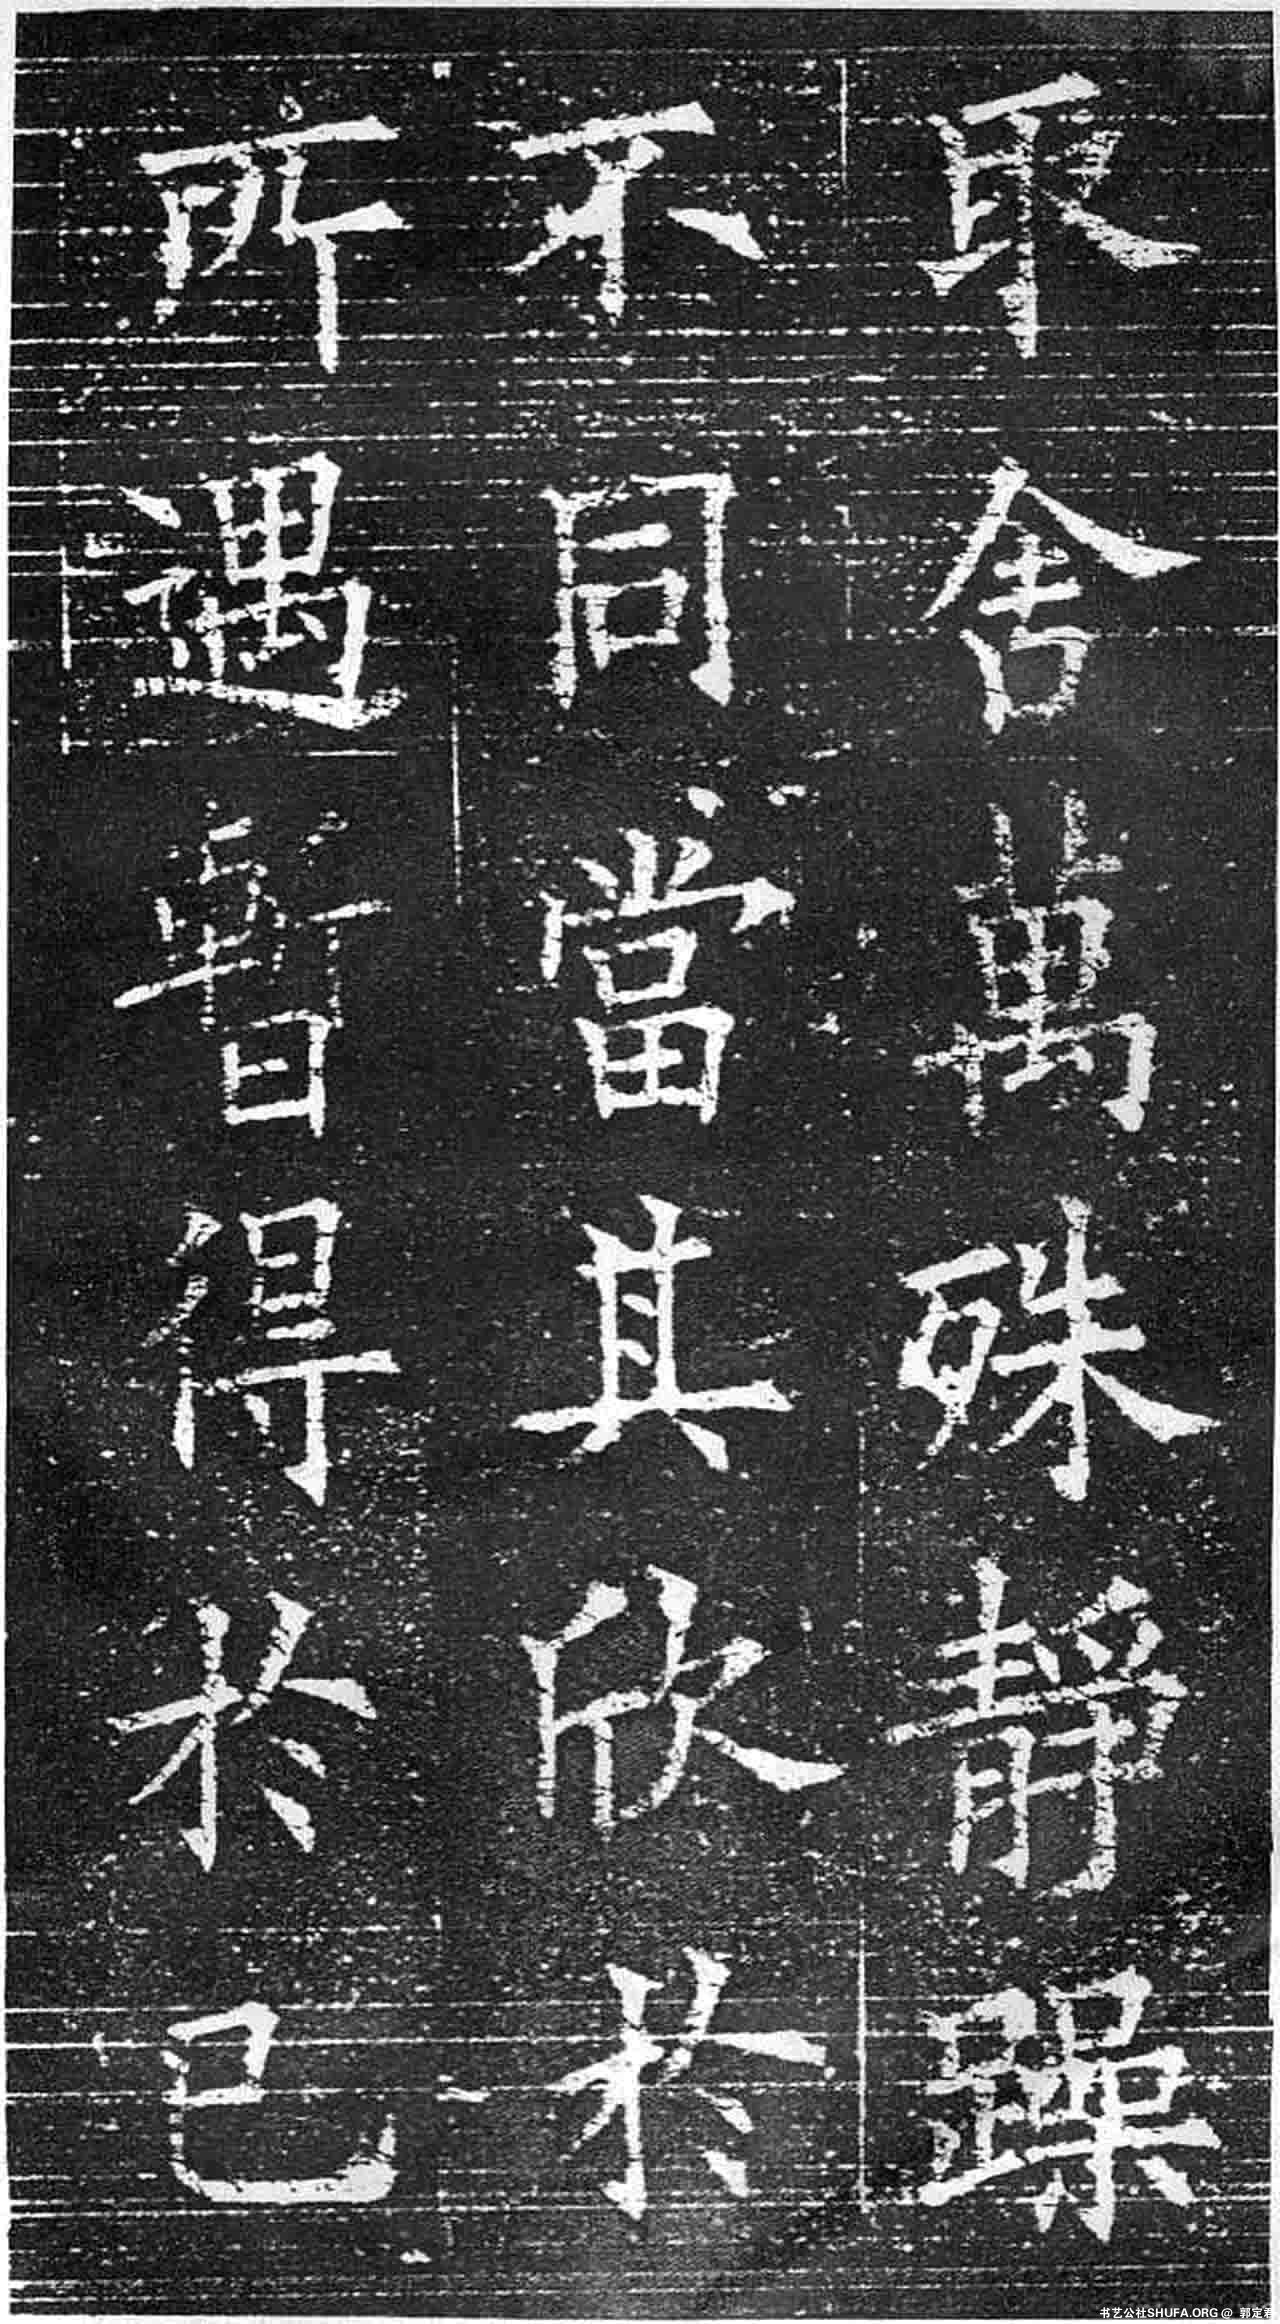 取舍萬殊静躁
不同當其欣於
所遇暫得於己
书艺公社SHUFA.ORG @ 郭定君